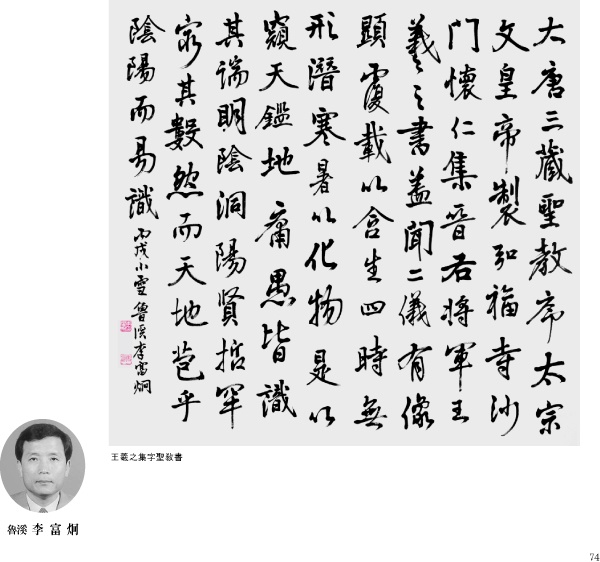 大唐三藏聖教序太宗
文皇帝製弘福寺沙
門懷仁集晉右將軍王
羲之書蓋聞二儀有像
顯覆載以含生四時無
形潛寒暑以化物是以
窺天鑑地庸愚皆識
其端明陰洞陽賢哲罕
窮其數然而天地苞乎
陰陽而易識 丙戌小雪 魯溪李富炯
王羲之集字聖敎書
魯溪 李富炯
74